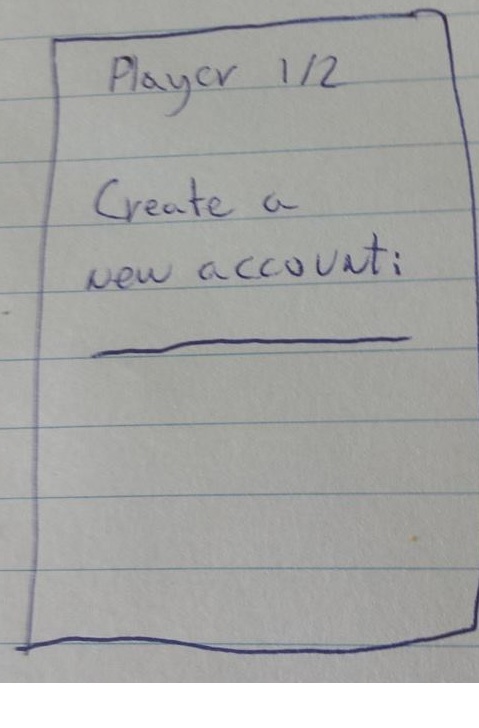 Player 1/2
Create a
new account: